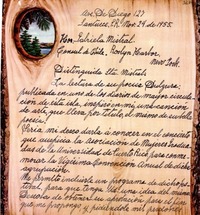 Ave. De Diego 127
Santurce, P.R., Nov. 24 de 1955.
Hon. Gabriela Mistral
Consul de Chile, Roslyn Harbor,
New York.
Distinguida Srta. Mistral:
La lectura de su poesía Dulzura,
publicada en uno de los diarios de mayor circu-
lación de esta isla, inspiró en mí una canción
de arte, que lleva por título, el mismo de su bella
poesía.
Sería mi deseo darla a conocer en el concierto
que auspicia la Asociación de Mujeres Gradua-
das de la Universidad de Puerto Rico para conme-
morar la Vigésima Convención Anual de dicha
agrupación.
Me permito incluirle un programa de dicho
para que tenga Ud. una idea del
de obtener su aprobación para el fin
que me propongo y pidiéndole mil perdones